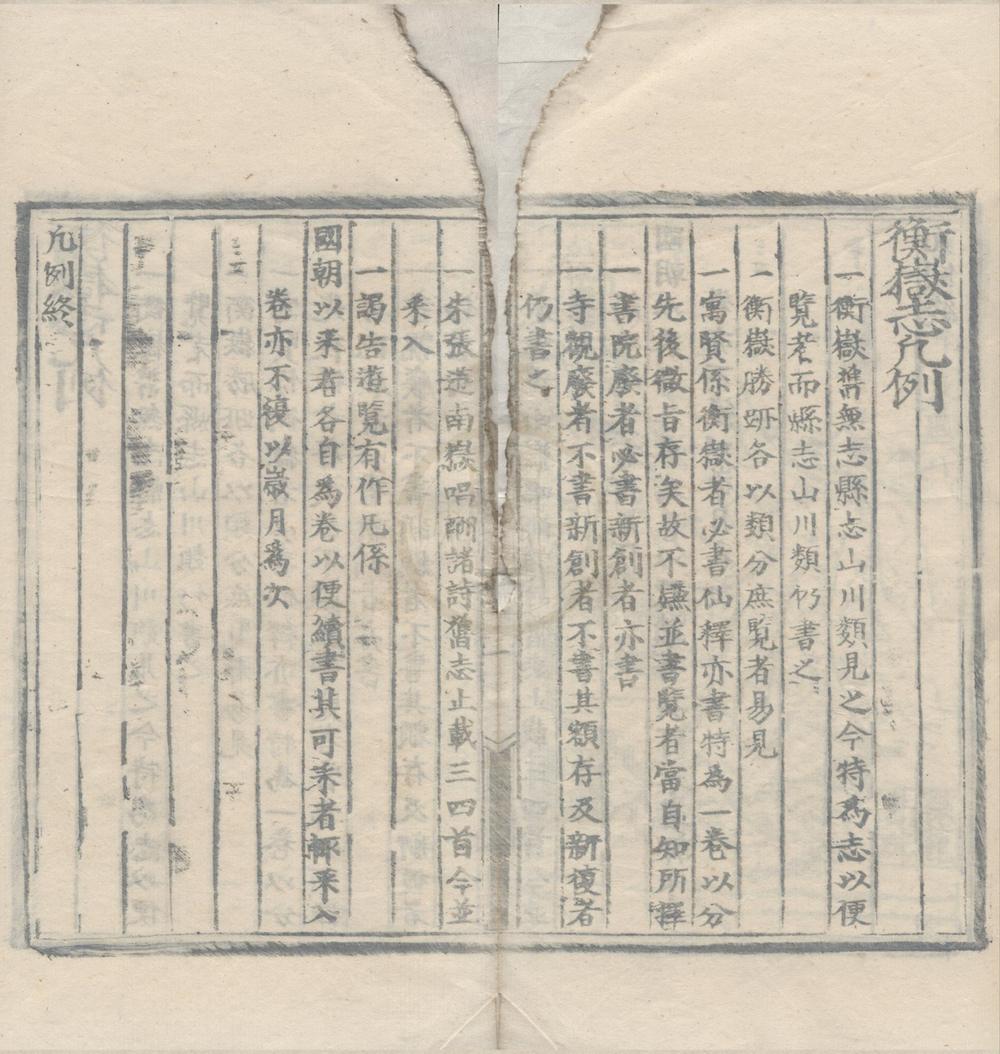 衡嶽志凡例
一衡嶽舊無志縣志山川類見之今特為志以便
覽者而縣志山川類仍書之
一衡嶽勝跡各以類分庶覽者易見
一寓賢係衡嶽者必書仙釋亦書特為一卷以分
先後微旨存矣故不嫌並書覽者當自知所擇
一書院廢者必書新創者亦書
一寺觀廢者不書新創者不書其額存及新復者
仍書之
一朱張遊南嶽唱酬諸詩舊志止載三四首今並
采入
一謁告遊覽有作凡係
國朝以來者各自為卷以便續書其可采者輒采入
卷亦不復以歲月為次
凡例終